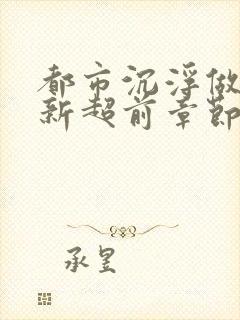 都市沉浮做
新超前章節
承昱